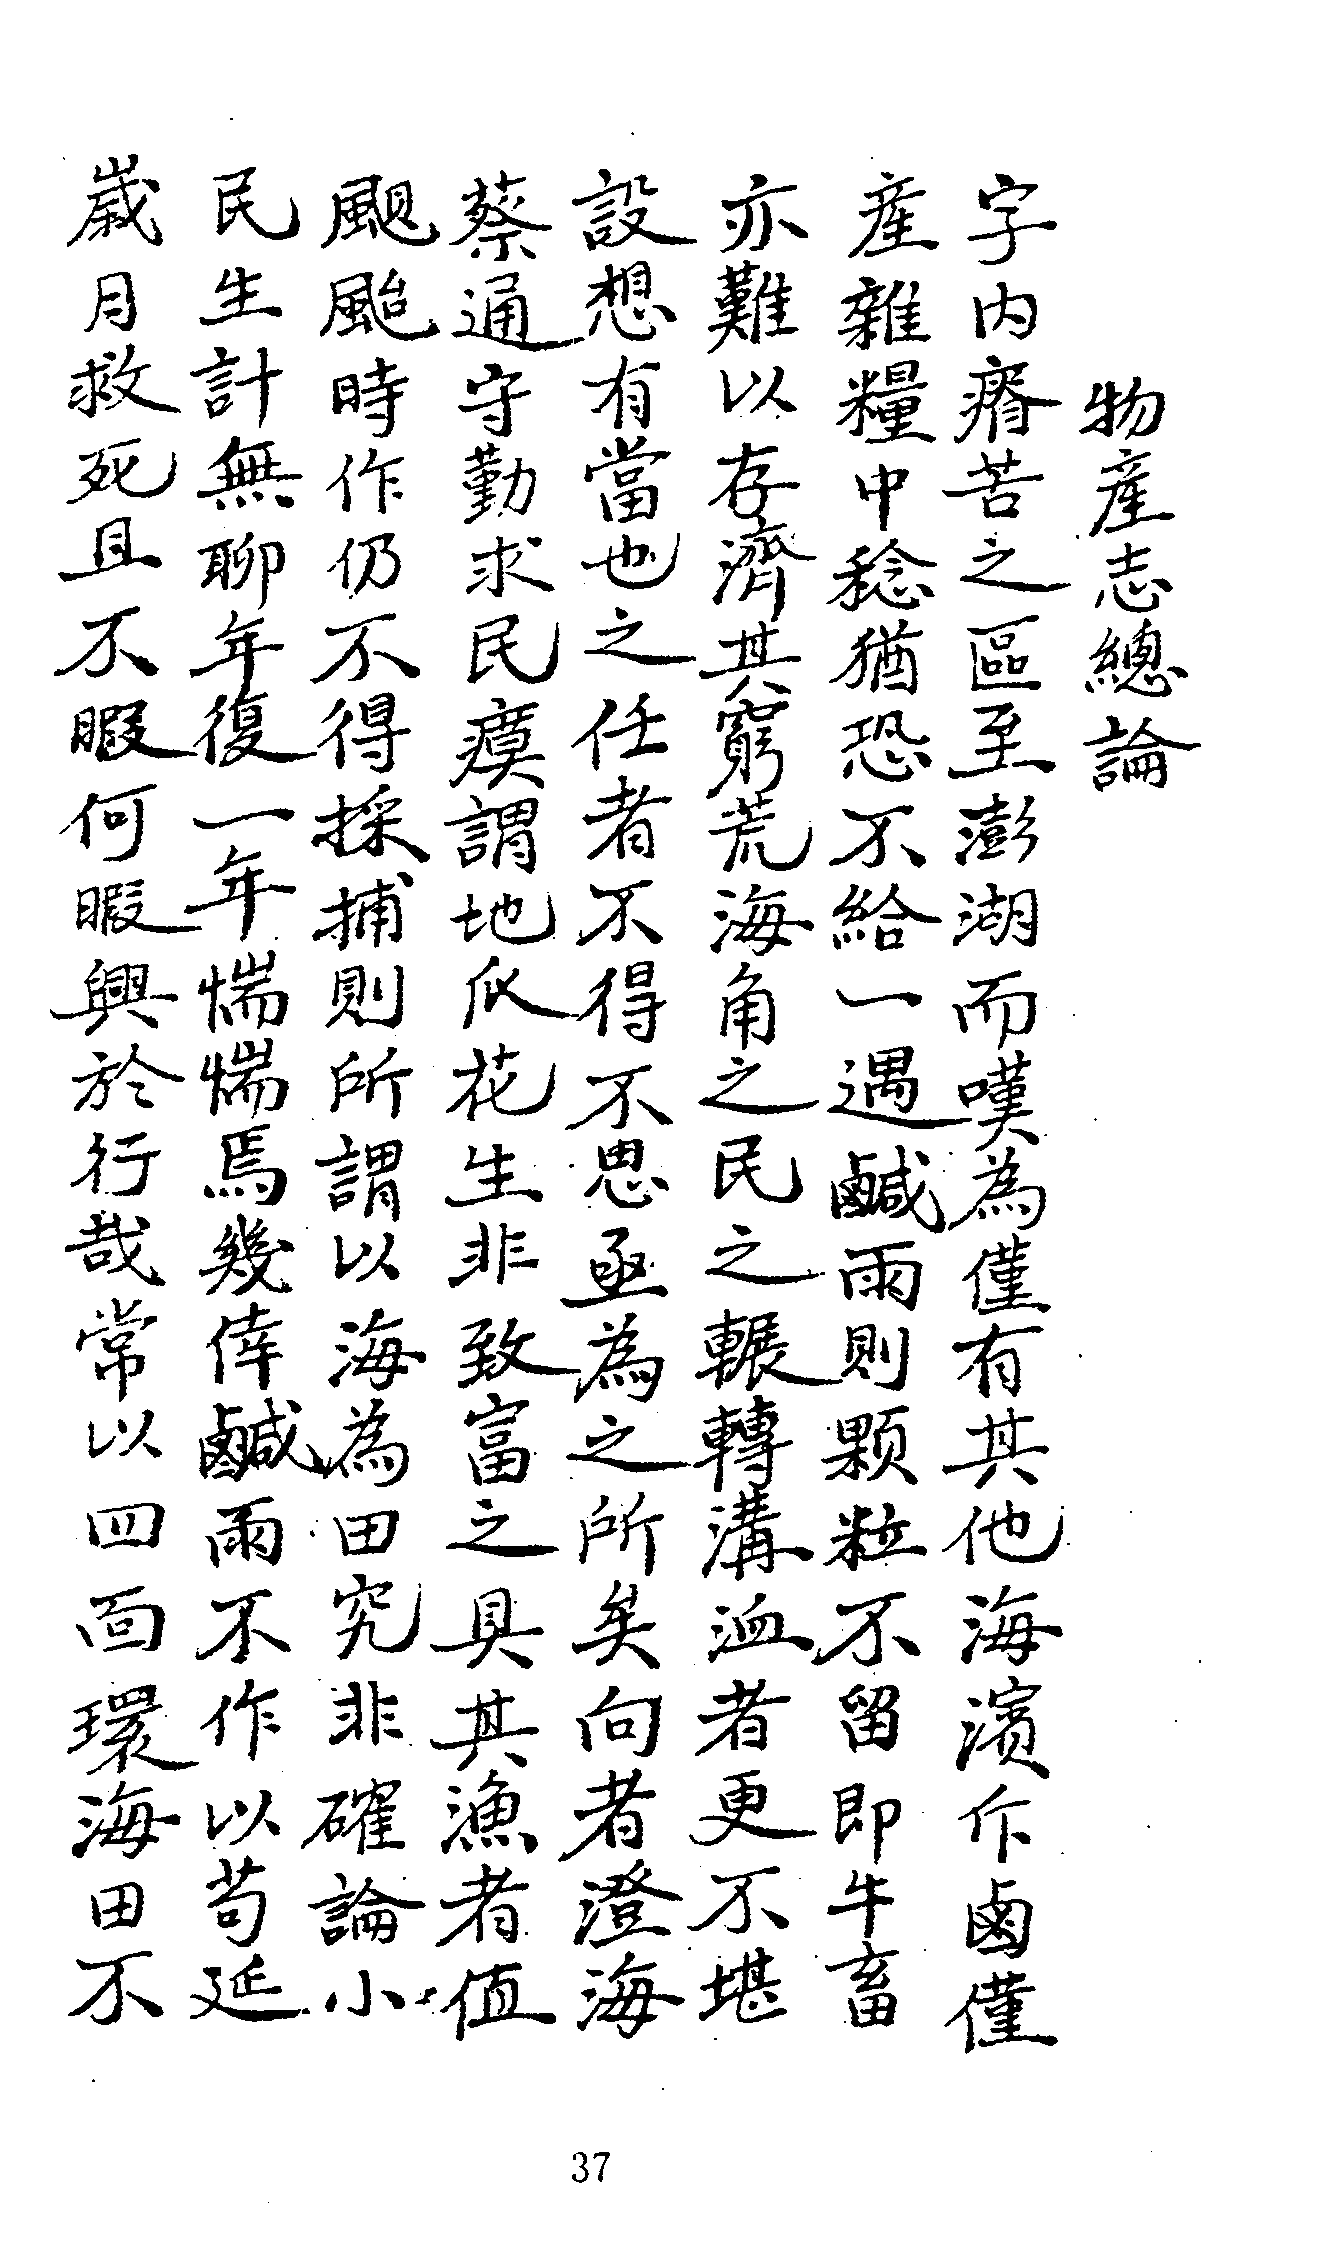 物產志總論
字内瘠苦之區至澎湖而嘆為僅有其他海濱斥鹵僅
產雜糧中稔猶恐不給一遇鹹雨則顆粒不留即牛畜
亦難以存濟其窮荒海角之民之輾轉溝洫者更不堪
設想有當也之任者不得不思亟為之所矣向者澄海
蔡通守勤求民瘼謂地瓜花生非致富之具其漁者值
颶颱時作仍不得採捕則所謂以海為田究非確論小
民生計無聊年復一年惴惴焉幾倖鹹雨不作以苟延
歲月救死且不暇何暇興於行哉常以四面環海田不
37